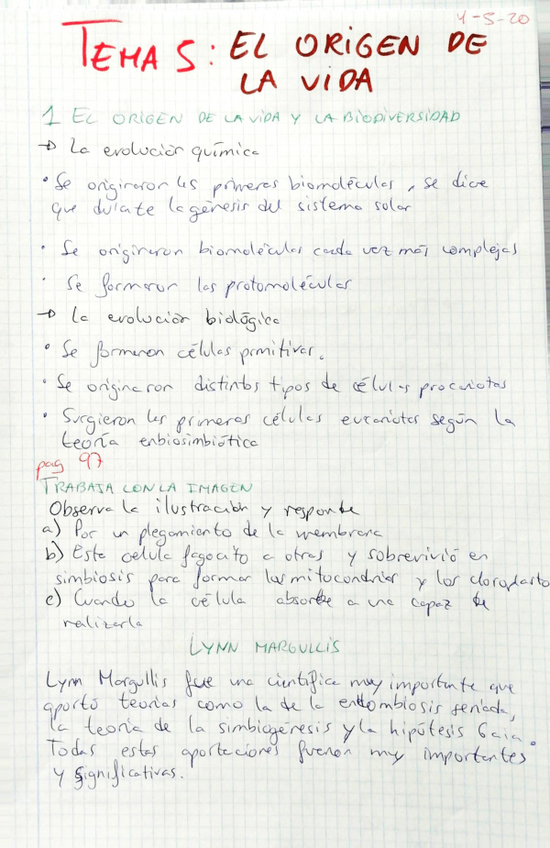 4-5-20
TEMA 5: EL ORIGEN DE
LA VIDA
1 EL ORIGEN DE LA VIDA Y LA BIODIVERSIDAD
→ La evolución química
• Se originaron las primeras biomoléculas, se dice
que durate la génesis del sistema solar
• Se originaron biomoléculas cada vez más complejas
• Se formaron las protomoléculas
→ La evolución biológica
• Se formaron células primitivas.
• Se originaron distintos tipos de células procariotas
• Surgieron las primeras células eucariotas según la
teoría enbiosimbiótica
pag 97
TRABAJA CON LA IMAGEN
Observa la ilustración y responde
a) Por un plegamiento de la membrana
b) Esta celula fagocito a otras y sobrevivió en
simbiosis para formar las mitocondrias y los cloroplastos
c) Cuando la célula absorbe a una capaz de
realizarla
LYNN MARGULLIS
Lynn Margullis fue una científica muy importante que
aportó teorías como la de la seriada,
la teoría de la simbiogénesis y la hipótesis Gaia.
Todas estas aportaciones fueron muy importantes
y significativas.